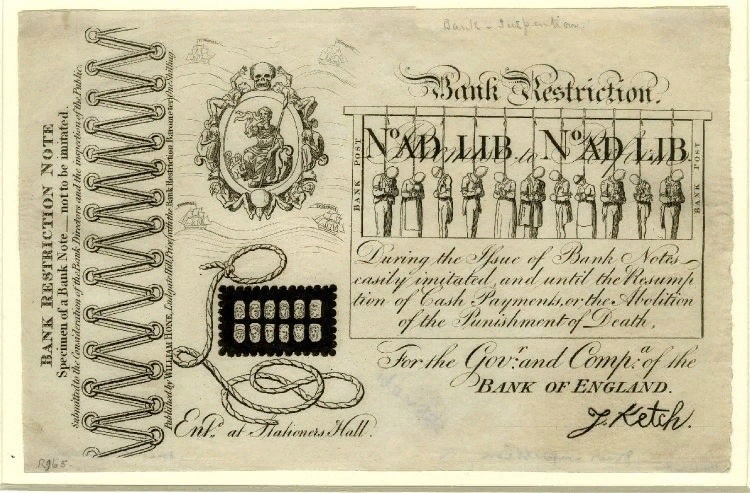 Bank Restriction.
BANK RESTRICTION NOTE
Specimen of a Bank Note_ not to be imitated.
Submitted to the Consideration of the Bank Directors and the inspection of the Public.
Published by WILLIAM HONE, Ludgate Hill, Price with the Bank Restriction Barometer One Shilling.
BANK POST
Nº AD LIB Nº AD LIB
BANK POST
During the Issue of Bank Notes
easily imitated, and until the Resump
tion of Cash Payments, or the Abolition
of the Punishment of Death,
For the Govr. and Compa. of the
BANK OF ENGLAND.
J. Ketch.
Entd. at Stationers Hall.
R965